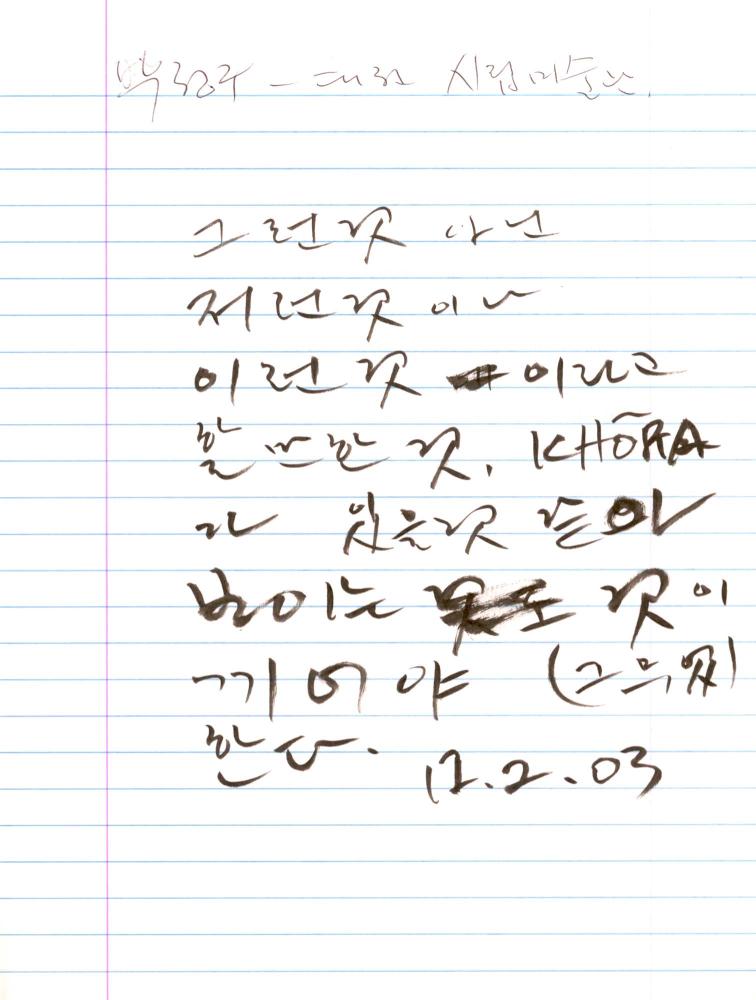 박정구 - 대전 시립미술관.
그런것 아닌
저런것이나
이런것 이라고
할 만한 것. KHŌRA
가 있을것 같아
보이는 것이
끼어야
한다. 12.2.03